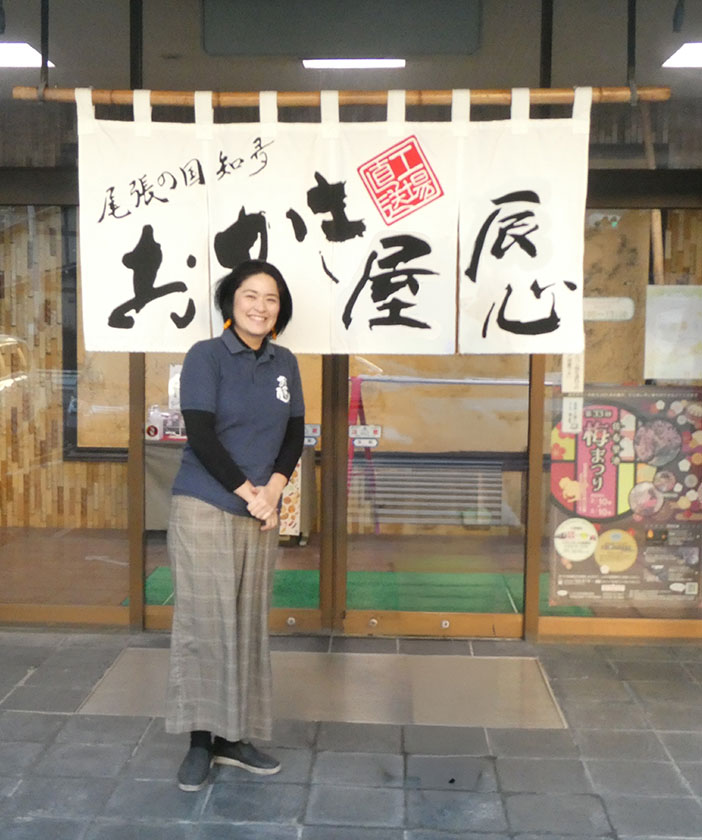 尾張の国 知多
工場
直送
おかき屋
辰心
梅まつり